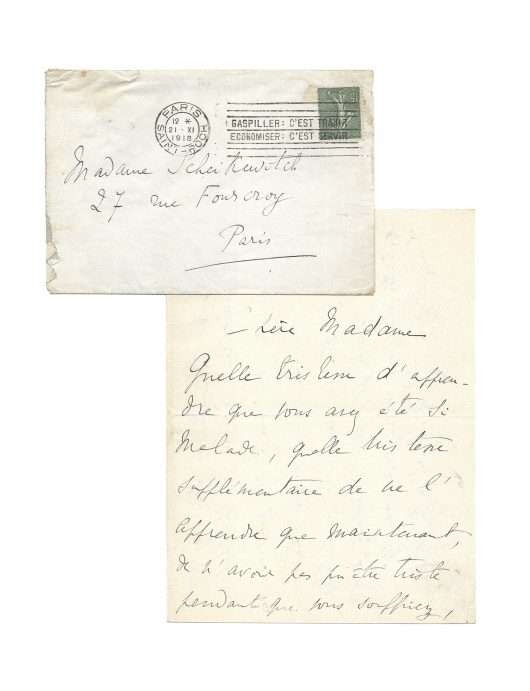 PARIS
12 *
21 - XI
1918
GASPILLER: C'EST TRAHIR
ECONOMISER: C'EST SERVIR
Madame Scheikevitch
27 rue Fourcroy
Paris
Chère Madame
Quelle tristesse d'appren-
dre que vous avez été si
Malade, quelle tristesse
supplémentaire de ne l'
apprendre que maintenant,
de n'avoir pas pu être triste
pendant que vous souffriez,